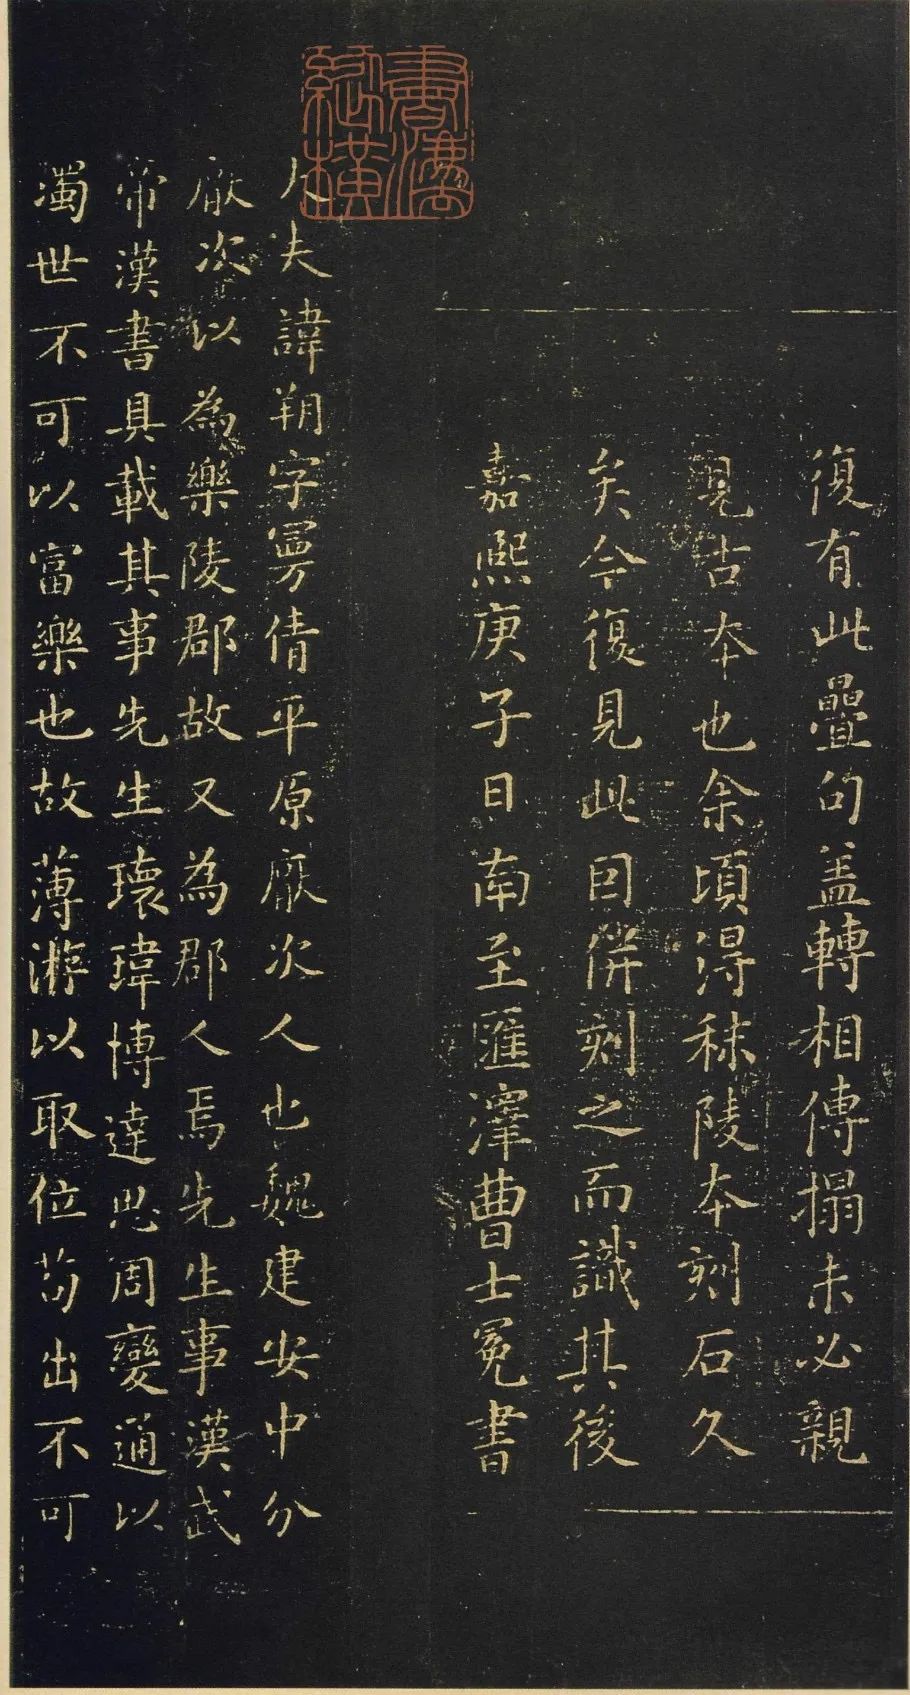 書法
縱橫
復有此疊句盖轉相傳搨未必親
見古本也余頃得秣陵本刻石久
矣今復見此因併刻之而識其後
嘉熙庚子日南至匯澤曹士冕書
大夫諱朔字曼倩平原厭次人也魏建安中分
厭次以為樂陵郡故又為郡人焉先生事漢武
帝漢書具載其事先生瓌瑋博達思周變通以
濁世不可以富樂也故薄游以取位苟出不可